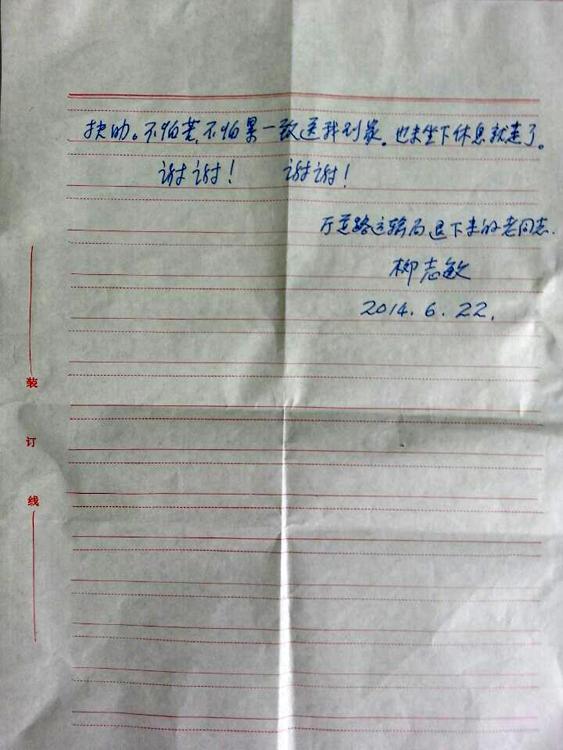 扶助。不怕苦、不怕累一致送我到家。也未坐下休息就走了。
谢谢！ 谢谢！
厅道路运输局退下来的老同志.
柳志敏
2014.6.22.
装
订
线